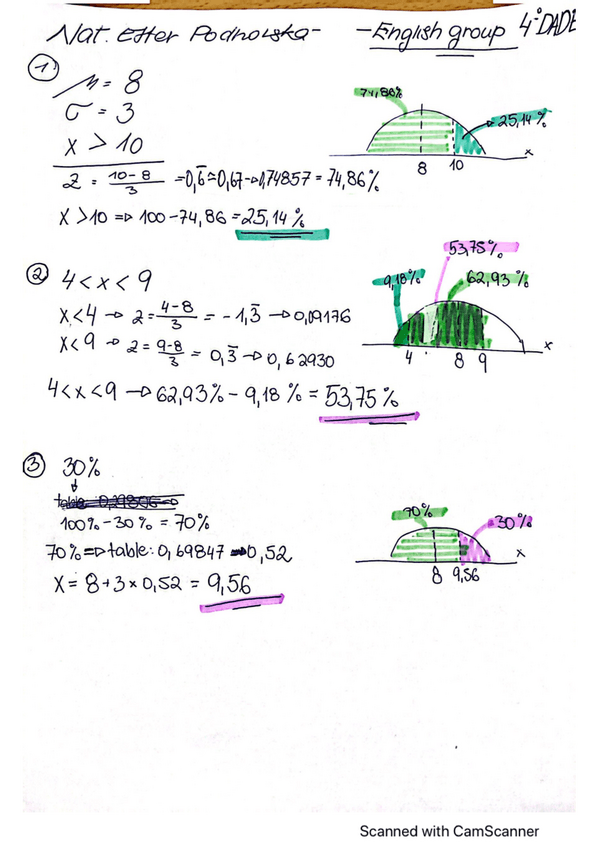 Nat. Etter Podhorska- -English group 4°DADE
1)
μ = 8
σ = 3
x > 10
z = 10-8/3 = 0,6̅ ≃ 0,67 → 0,74857 = 74,86%
x > 10 => 100-74,86 = 25,14%
74,86%
25,14%
8 10 x
2 4 < x < 9
x < 4 → z = 4-8/3 = -1,3̅ → 0,09176
x < 9 → z = 9-8/3 = 0,3̅ → 0,62930
4 < x < 9 → 62,93% - 9,18% = 53,75%
53,75%
9,18% 62,93%
4 8 9 x
3 30%
100% - 30% = 70%
70% => table: 0,69847 → 0,52
x = 8 + 3 × 0,52 = 9,56
70% 30%
8 9,56 x
Scanned with CamScanner